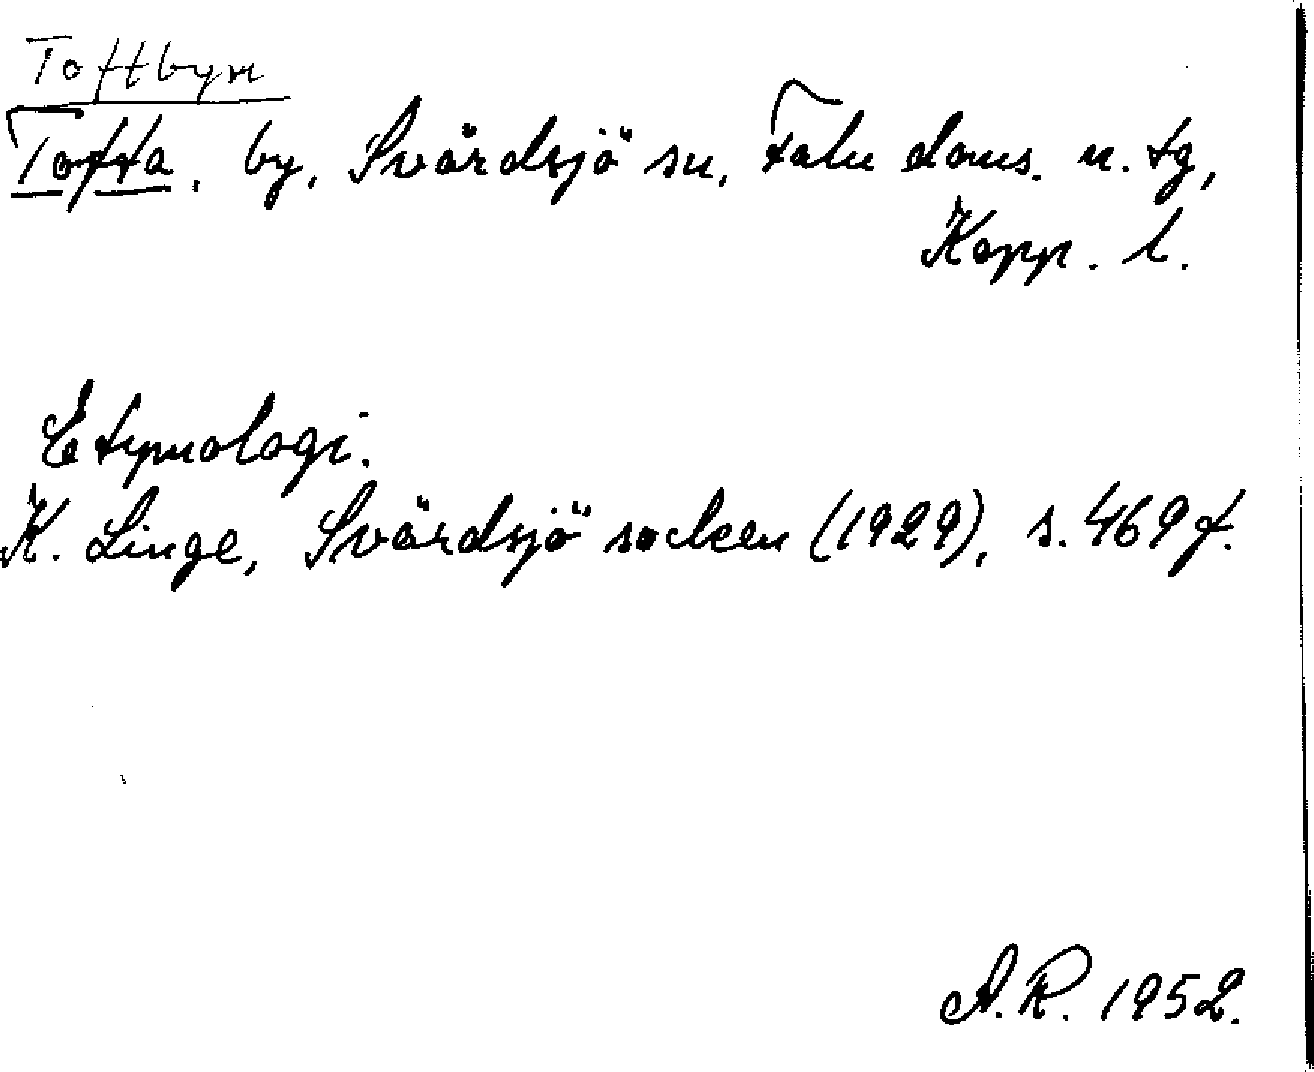 Toftbyn
Tofta, by, Svärdsjö sn, Falu doms. n. tg,
Kopp. l.
Etymologi.
K. Linge, Svärdsjö socken (1929), s. 469 f.
A.R. 1952.